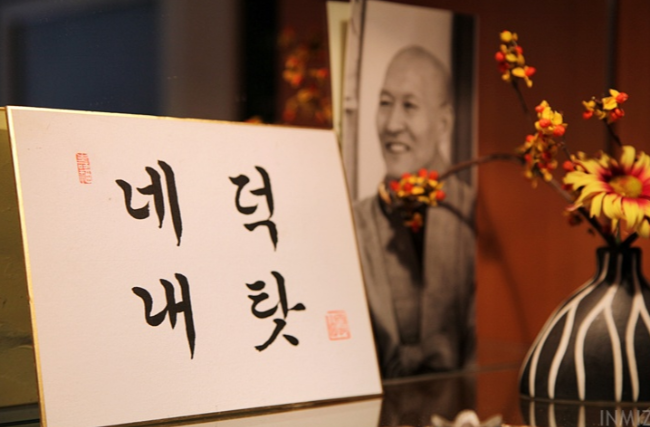 네 덕
내 탓
INMIZ